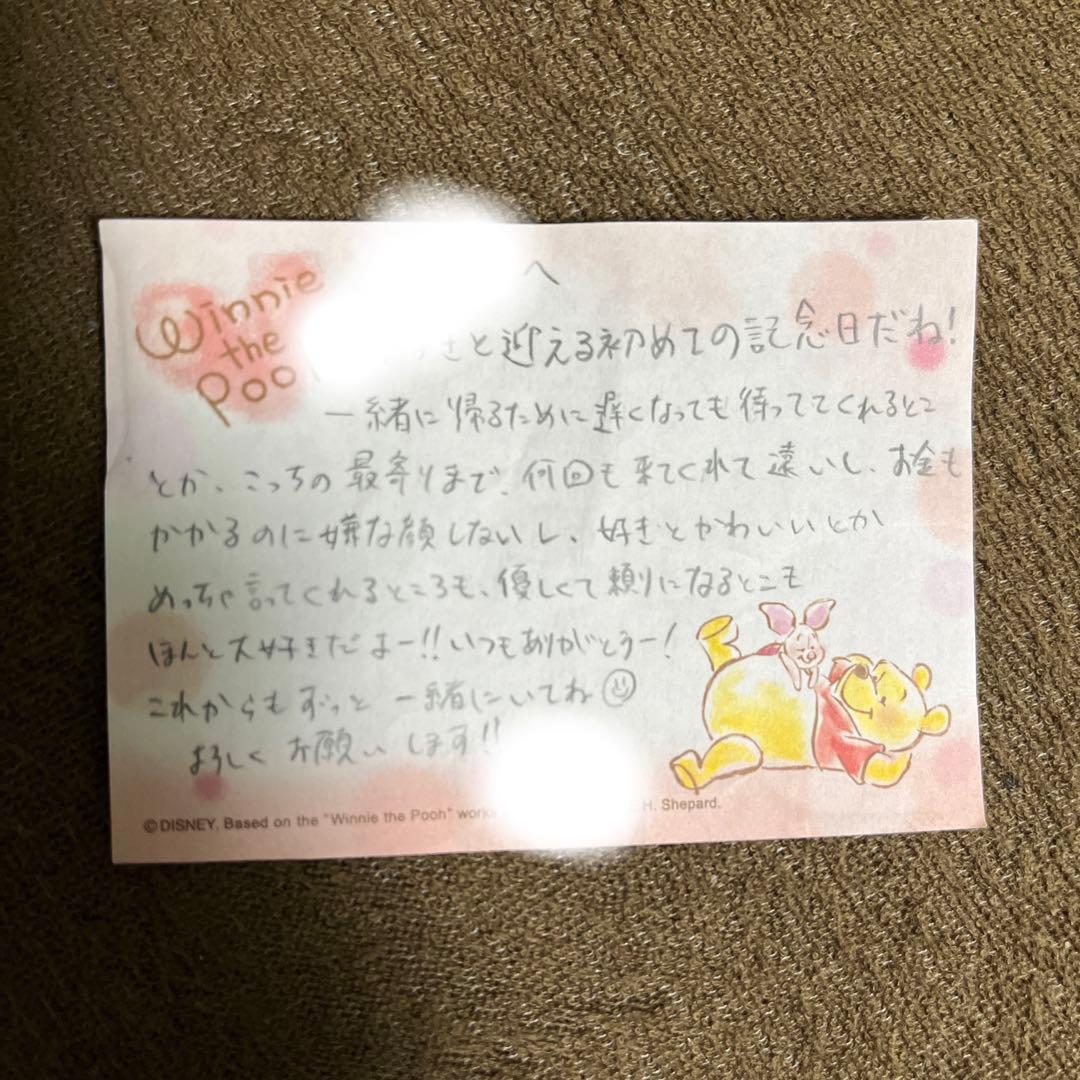 Winnie
the
Poo
へ
きと迎える初めての記念日だね!
一緒に帰るために遅くなっても待っててくれるとこ
とか、こっちの最寄りまで、何回も来てくれて遠いし、お金も
かかるのに嫌な顔しないし、好きとかかわいいとか
めっちゃ言ってくれるところも、優しくて頼りになるとこも
ほんと大好きだよー!!いつもありがとうー!
これからもずっと一緒にいてね☺
よろしくお願いします!!
©DISNEY. Based on the "Winnie the Pooh" works H. Shepard.